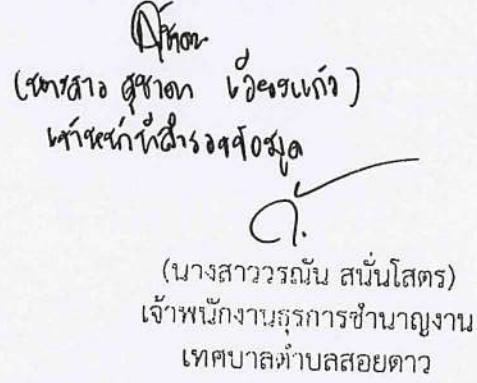 สุชาดา
(นางสาว สุชาดา เวียงแก้ว)
เจ้าหน้าที่สำรองข้อมูล
(นางสาววรณัน สนั่นโสตร)
เจ้าพนักงานธุรการชำนาญงาน
เทศบาลตำบลสอยดาว